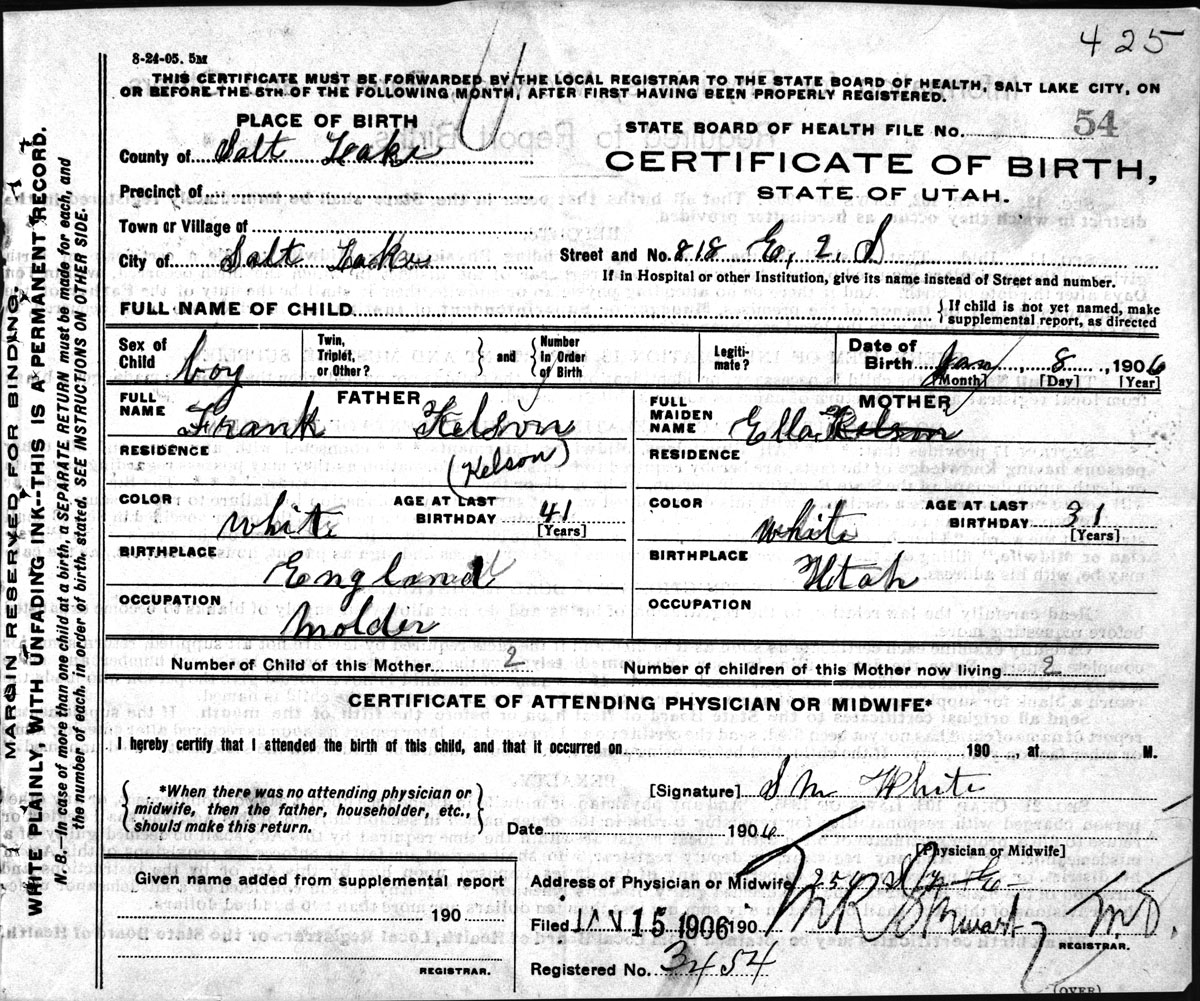 425
8-24-05. 5M
THIS CERTIFICATE MUST BE FORWARDED BY THE LOCAL REGISTRAR TO THE STATE BOARD OF HEALTH, SALT LAKE CITY, ON
OR BEFORE THE 5TH OF THE FOLLOWING MONTH, AFTER FIRST HAVING BEEN PROPERLY REGISTERED.
PLACE OF BIRTH
STATE BOARD OF HEALTH FILE No. 54
County of Salt Lake
CERTIFICATE OF BIRTH,
Precinct of
STATE OF UTAH.
Town or Village of
City of Salt Lake
Street and No. 818 E. 2. S
If in Hospital or other Institution, give its name instead of Street and number.
FULL NAME OF CHILD
{If child is not yet named, make
supplemental report, as directed
Sex of Child boy
Twin, Triplet, or Other? } and { Number in Order of Birth
Legitimate?
Date of Birth Jan, 8, 1906
[Month] [Day] [Year]
FATHER
FULL NAME Frank Kelson
(Kelson)
RESIDENCE
COLOR white
AGE AT LAST BIRTHDAY 41
[Years]
BIRTHPLACE
England
OCCUPATION
Molder
MOTHER
FULL MAIDEN NAME Ella Kelson
RESIDENCE
COLOR white
AGE AT LAST BIRTHDAY 31
[Years]
BIRTHPLACE
Utah
OCCUPATION
Number of Child of this Mother 2
Number of children of this Mother now living 2
CERTIFICATE OF ATTENDING PHYSICIAN OR MIDWIFE*
I hereby certify that I attended the birth of this child, and that it occurred on 190 , at M.
{*When there was no attending physician or
midwife, then the father, householder, etc.,
should make this return.}
[Signature] S M White
Date 1906
[Physician or Midwife]
Given name added from supplemental report
190
REGISTRAR.
Address of Physician or Midwife
Filed JAN 15 1906 190
M.D.
REGISTRAR.
Registered No. 3454
(OVER)
MARGIN RESERVED FOR BINDING.
WRITE PLAINLY, WITH UNFADING INK--THIS IS A PERMANENT RECORD.
N. B.—In case of more than one child at a birth, a SEPARATE RETURN must be made for each, and
the number of each, in order of birth stated. SEE INSTRUCTIONS ON OTHER SIDE.